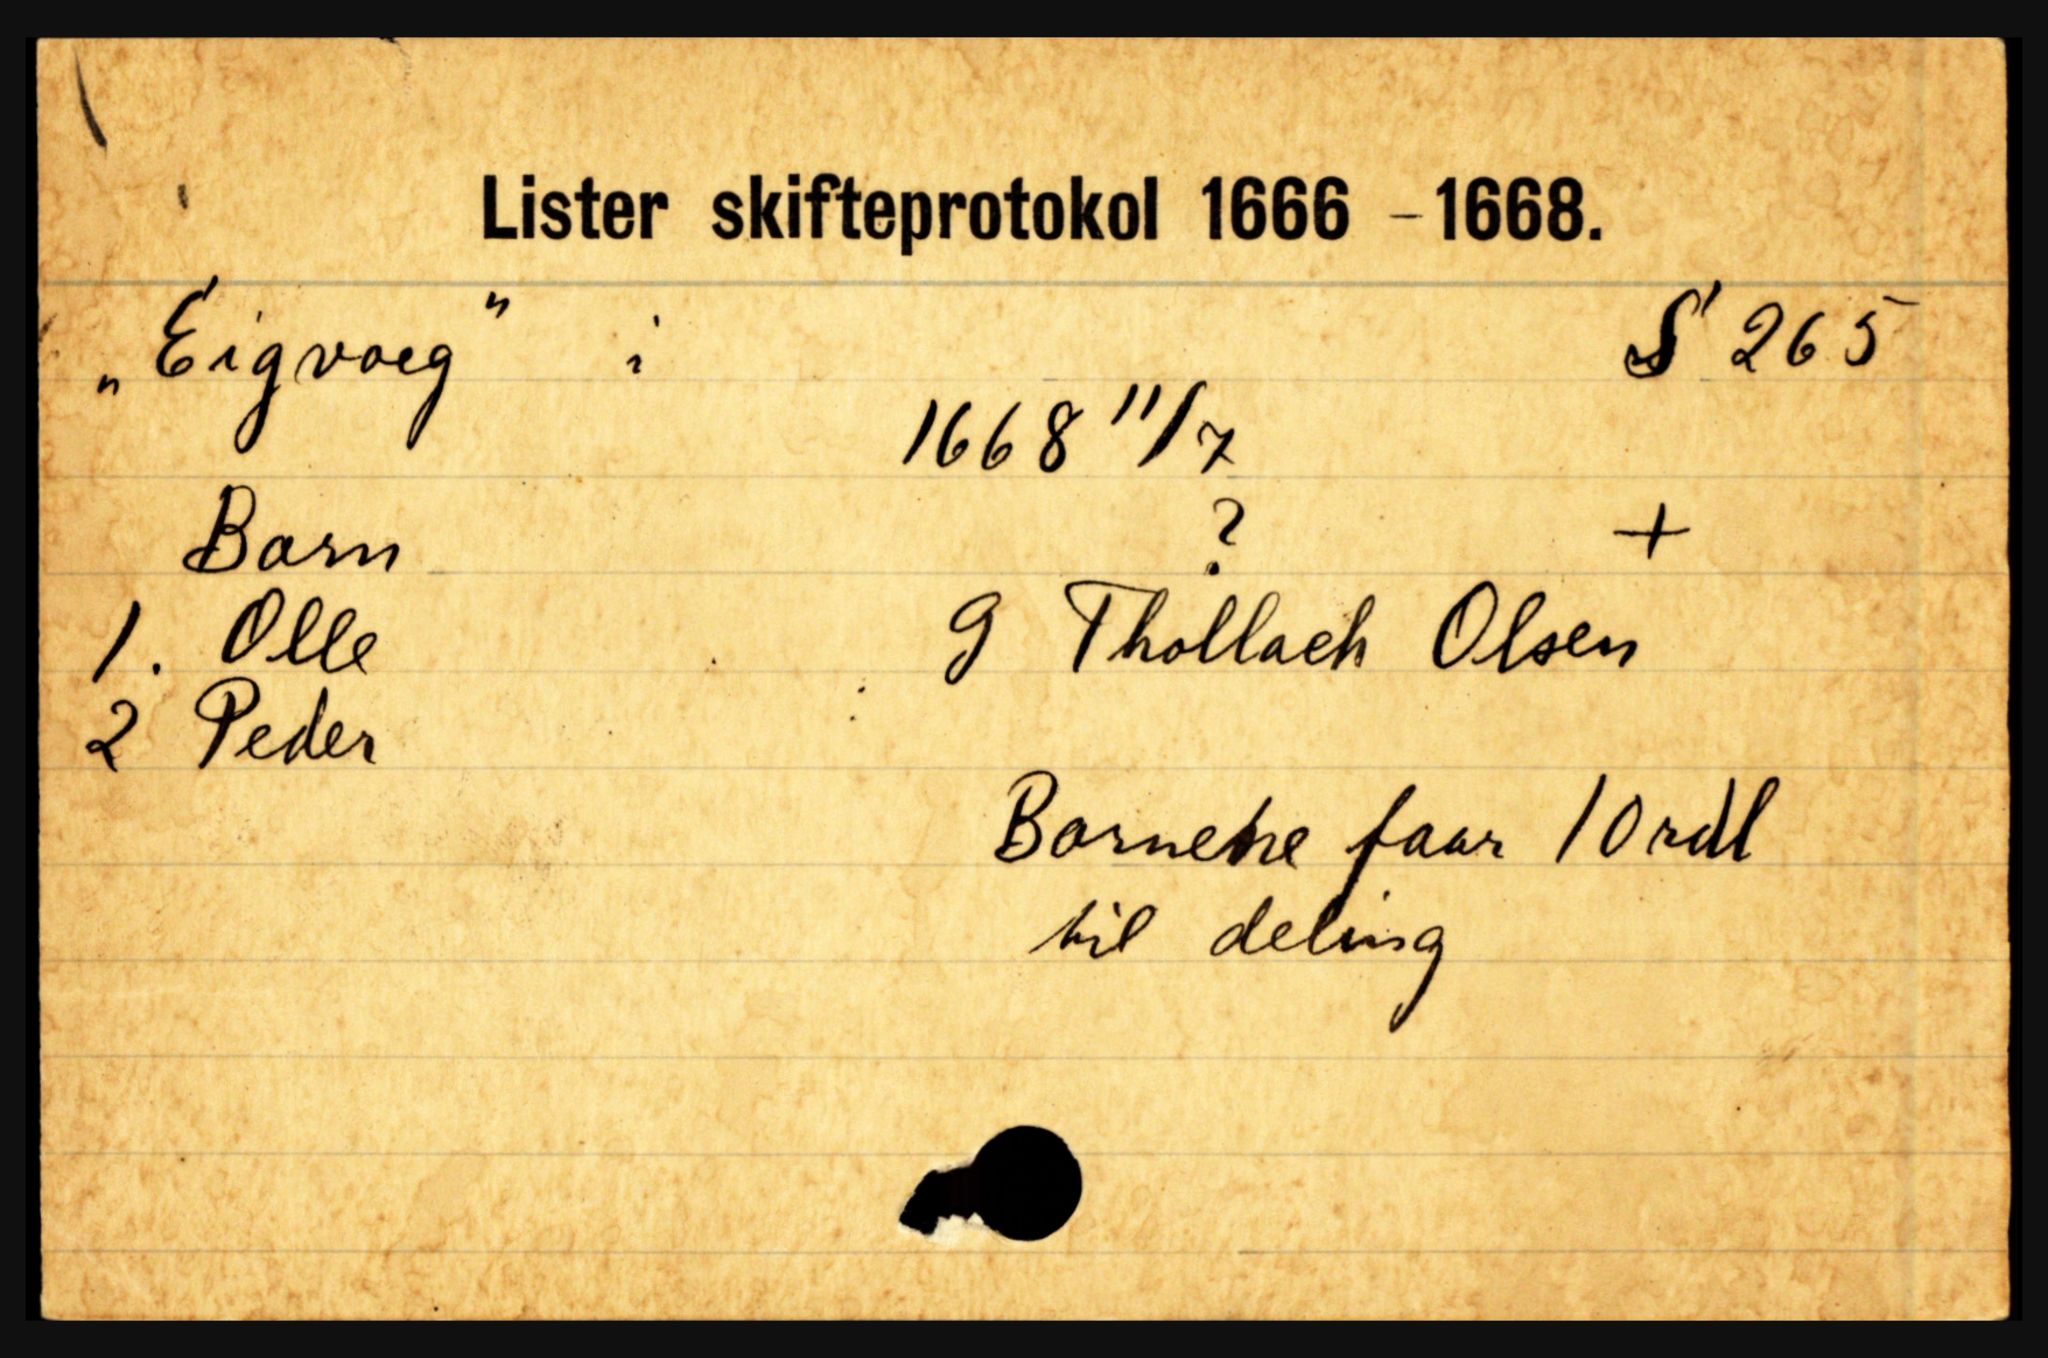 Lister skifteprotokol 1666 - 1668.
„Eigvaeg" i S 265
1668 11/7
Barn ? +
1. Olle g Thollach Olsen
2 Peder
Barnene faar 10 rdl
til deling